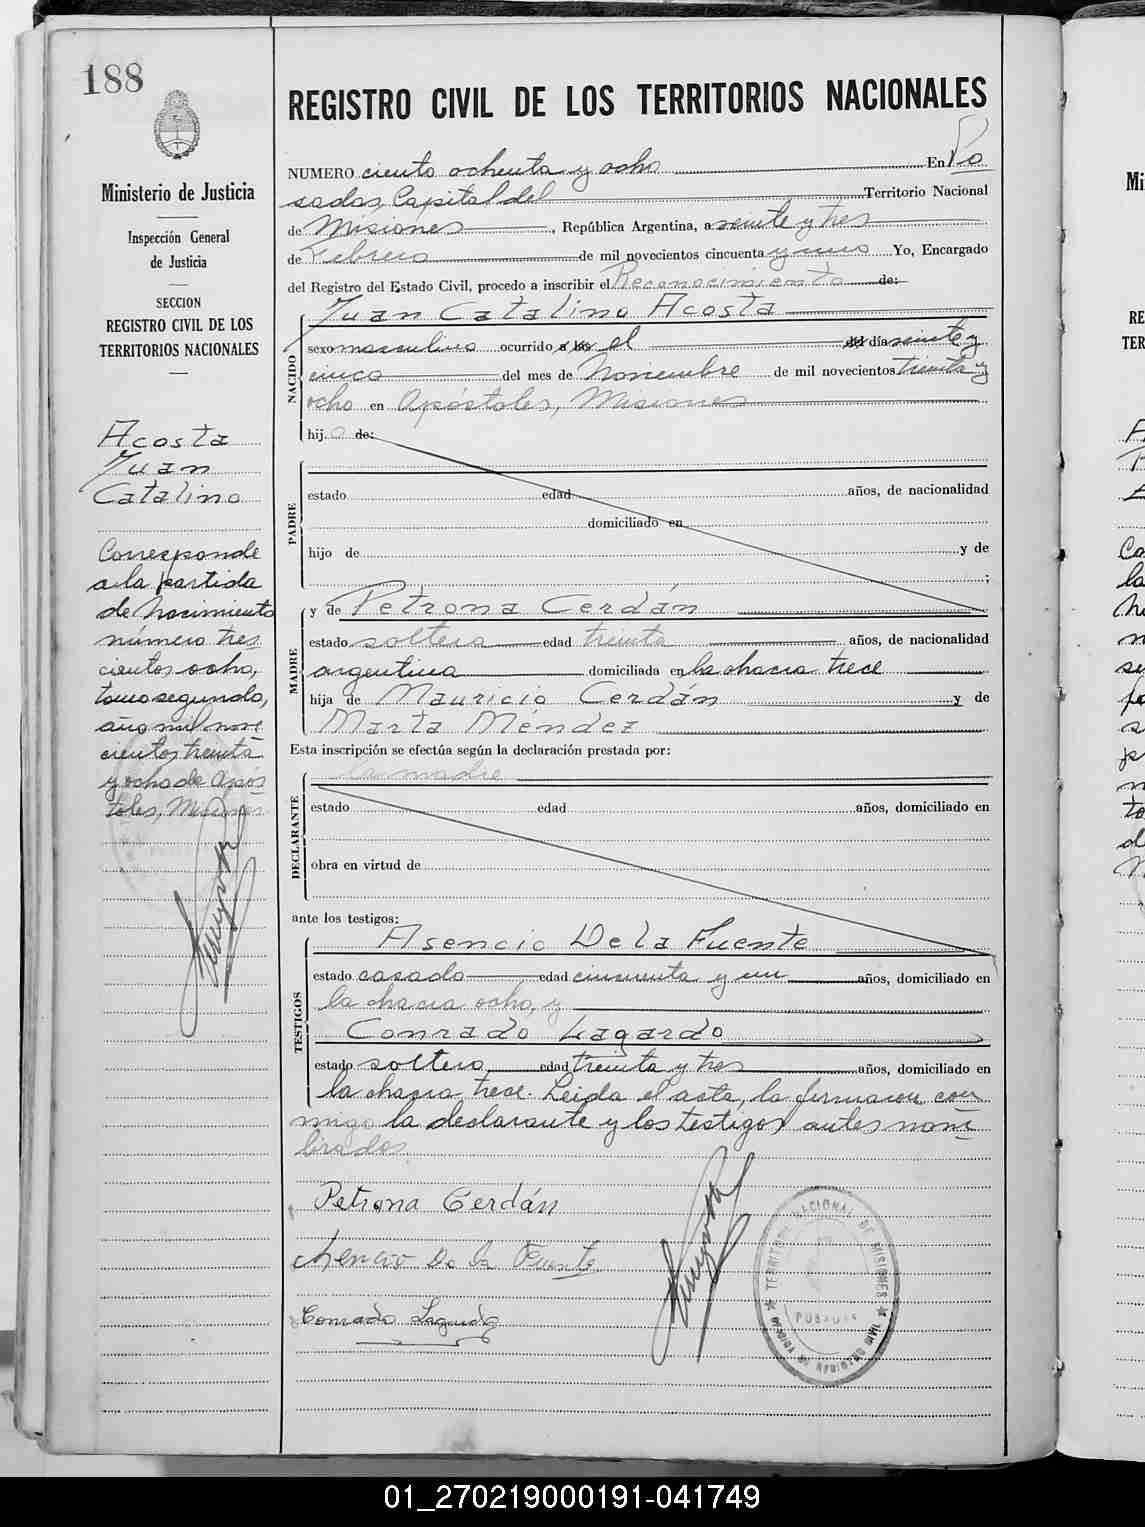 188
REGISTRO CIVIL DE LOS TERRITORIOS NACIONALES
Ministerio de Justicia
Inspección General
de Justicia
SECCION
REGISTRO CIVIL DE LOS
TERRITORIOS NACIONALES
Acosta
Juan
Catalino
Corresponde
a la partida
de Nacimiento
número tres
cientos ocho,
tomo segundo,
año mil nove
cientos treinta
y ocho de Após
toles, Misiones
NUMERO ciento ochenta y ocho En Po
sadas, Capital del Territorio Nacional
de Misiones, República Argentina, a veinte y tres
de Febrero de mil novecientos cincuenta y uno Yo, Encargado
del Registro del Estado Civil, procedo a inscribir el Reconocimiento de:
NACIDO
Juan Catalino Acosta
sexo masculino ocurrido a las el del día veinte y
cinco del mes de Noviembre de mil novecientos treinta y
ocho en Apóstoles, Misiones
hijo de:
PADRE
estado edad años, de nacionalidad
domiciliado en
hijo de y de
;
MADRE
y de Petrona Cerdán
estado soltera edad treinta años, de nacionalidad
argentina domiciliada en la chacra trece
hija de Mauricio Cerdán y de
Marta Méndez
Esta inscripción se efectúa según la declaración prestada por:
DECLARANTE
la madre
estado edad años, domiciliado en
obra en virtud de
ante los testigos:
TESTIGOS
Asencio De la Fuente
estado casado edad cincuenta y un años, domiciliado en
la chacra ocho, y
Conrado Lagardo
estado soltero, edad treinta y tres años, domiciliado en
la chacra trece. Leída el acta, la firmaron con
migo la declarante y los testigos antes nom
brados.
Petrona Cerdán
Asencio De la Fuente
Conrado Lagardo
TERRITORIO NACIONAL DE MISIONES
POSADAS
01_270219000191-041749